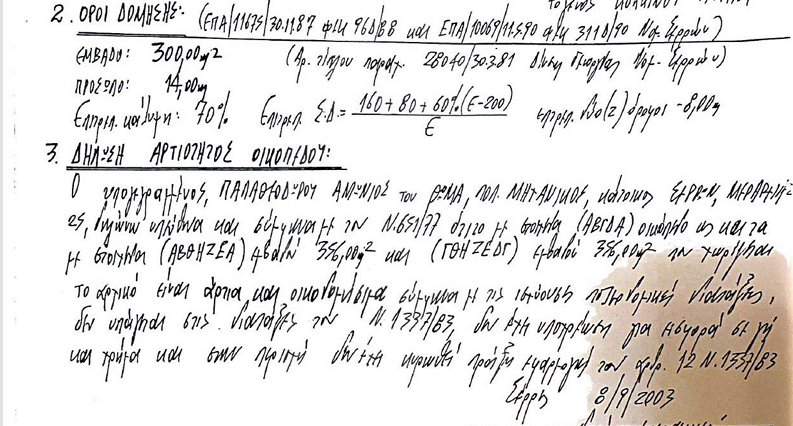 2. ΟΡΟΙ ΔΟΜΗΣΗΣ: (ΕΠΑ/11675/30.11.87 φεκ 96Δ/88 και ΕΠΑ/10069/11.5.90 φεκ 311Δ/90 Νομ. Σερρών)
ΕΜΒΑΔΟ: 300,00μ2 (Αρ. τίτλου παραχ. 28040/30.3.81 Δ/νση Γεωργίας Νομ. Σερρών)
ΠΡΟΣΩΠΟ: 14,00μ
Επιτρεπ. κάλυψη: 70% Επιτρεπ. Σ.Δ. = 160 + 80 + 60%(Ε-200) / Ε επιτρεπ. όροφοι - 8,00μ
3. ΔΗΛΩΣΗ ΑΡΤΙΟΤΗΤΟΣ ΟΙΚΟΠΕΔΟΥ:
Ο υπογεγραμμένος, ΠΑΠΑΘΕΟΔΩΡΟΥ ΑΝΤΩΝΙΟΣ του ΘΩΜΑ, ΠΟΛ. ΜΗΧΑΝΙΚΟΣ, κάτοικος ΣΕΡΡΩΝ, ΜΕΡΑΡΧΙΑΣ
25, δηλώνω υπεύθυνα και σύμφωνα με τον Ν.651/77 ότι το με στοιχεία (ΑΒΓΔΑ) οικόπεδο ως και τα
με στοιχεία (ΑΒΘΗΖΕΑ) εμβαδού 356,00μ2 και (ΓΘΗΖΕΔΓ) εμβαδού 356,00μ2 που χωρίζεται
το αρχικό είναι άρτια και οικοδομήσιμα σύμφωνα με τις ισχύουσες πολεοδομικές διατάξεις,
δεν υπάγεται στις διατάξεις του Ν. 1337/83, δεν έχει υποχρέωση για εισφορά σε γη
και χρήμα και στην περιοχή δεν έχει κυρωθεί πράξη εφαρμογής του αρθρ. 12 Ν. 1337/83
Σέρρες 8/9/2003